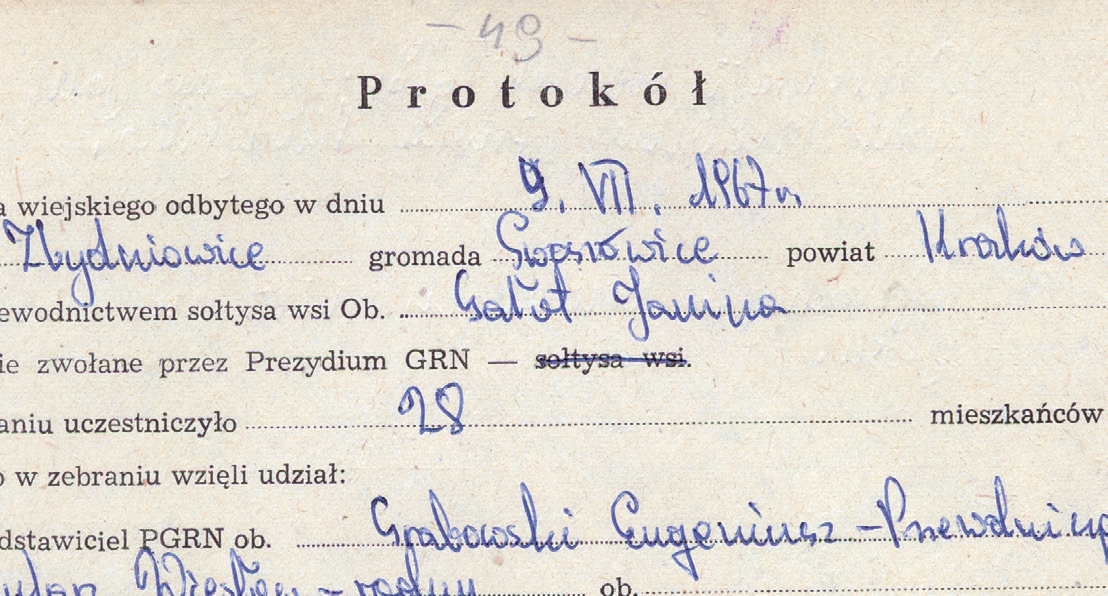 - 49 -
Protokół
a wiejskiego odbytego w dniu 9. VII. 1967 r.
Zbydniowice gromada Swoszowice powiat Kraków
ewodnictwem sołtysa wsi Ob. Gatoł Janina
ie zwołane przez Prezydium GRN — sołtysa wsi.
aniu uczestniczyło 28 mieszkańców
o w zebraniu wzięli udział:
dstawiciel PGRN ob. Grabowski Eugeniusz - Przewodnicz
Wiesław - radny ob.